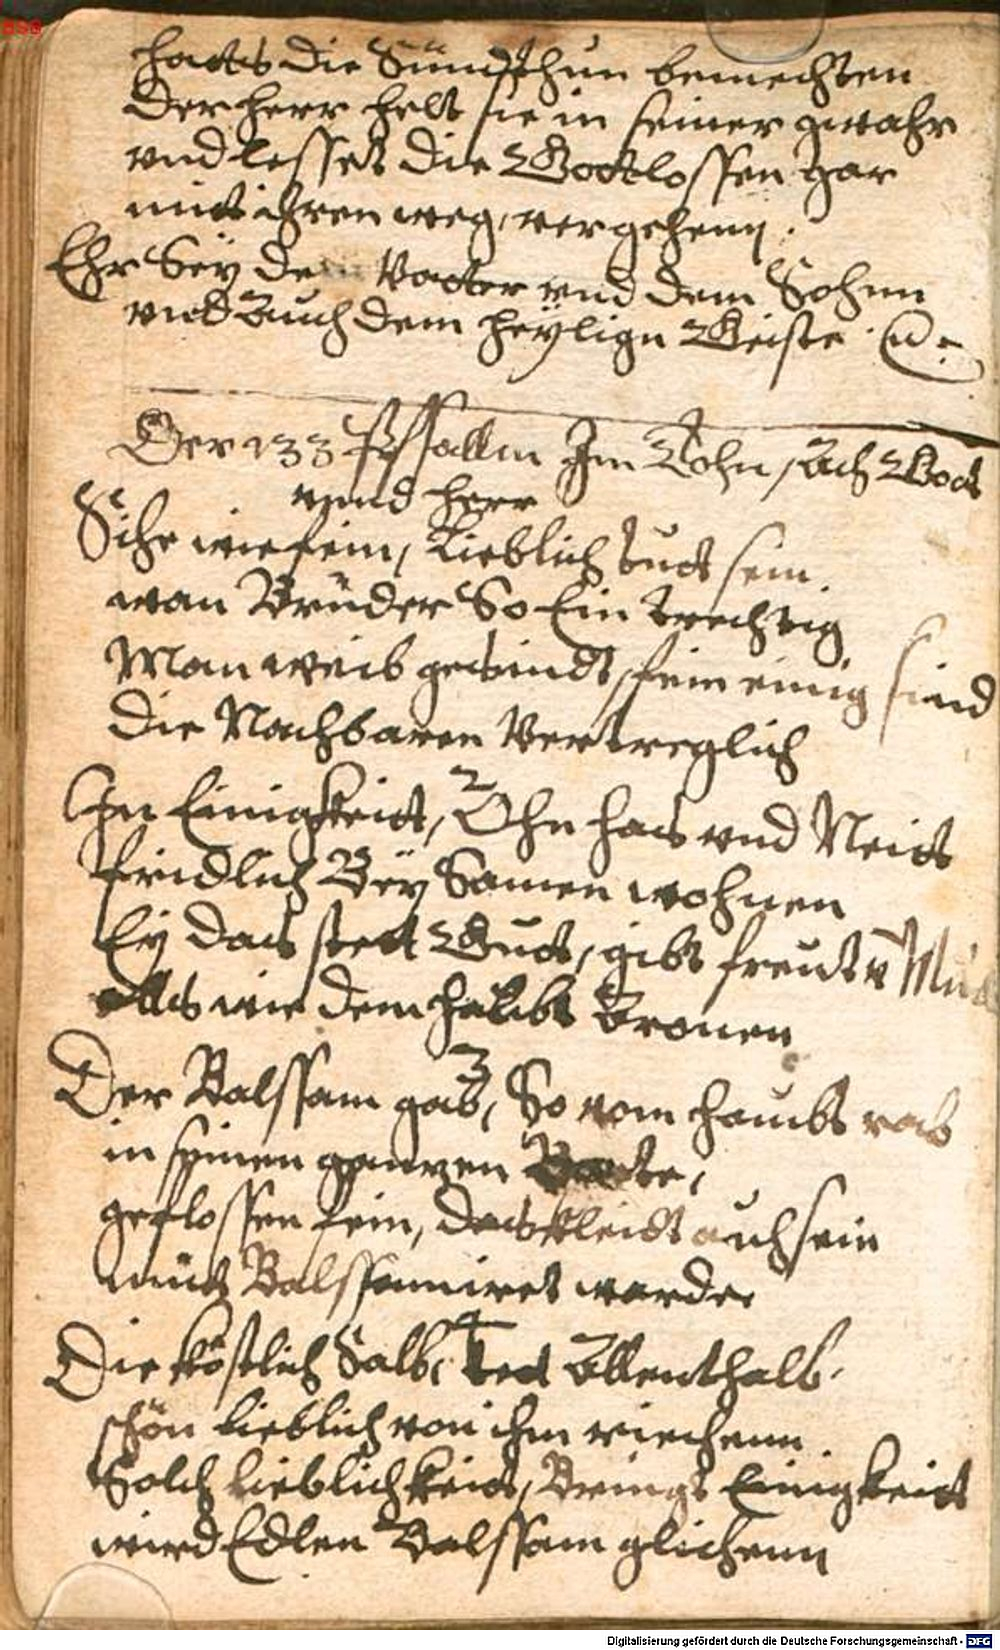 hatts die Sündthun bemechten
Der herr helt sie in seiner gwahr
vnd lesset die Gottlossen gar
mit ihren weg, vergehenn.
Ehr Seÿ de Vatter vnd dem Sohnn
vnd Auch dem heÿlign Geiste
Der 133 Psallm Im Tohn, Ach Gott
vnnd herr
Sihe wie fein, Lieblich tuts sein.
wan Brüder So Ein trechtig
Man weib gesindt, fein einig sind
Die Nachbaren Vertreglich
2
In Einigkeit, Ohn has vnd Neidt
fridlich Beÿ Samen wohnen
Eÿ das stett Gutt, gibt freudt v Mu
alls wie dem haubt
3
Der Balssam gab, So vom haubt rab
in seinen gantzen Barte,
geflossen sein, das kleidt auch sein
mit Balssamiret warde
4
Die köstlich Salb, tet Allenthalb.
schön lieblich von ihm riechenn.
Solch lieblichkeit, Bringt Einigkeit
wird Edlen Balssam glichenn
Digitalisierung gefördert durch die Deutsche Forschungsgemeinschaft - DFG